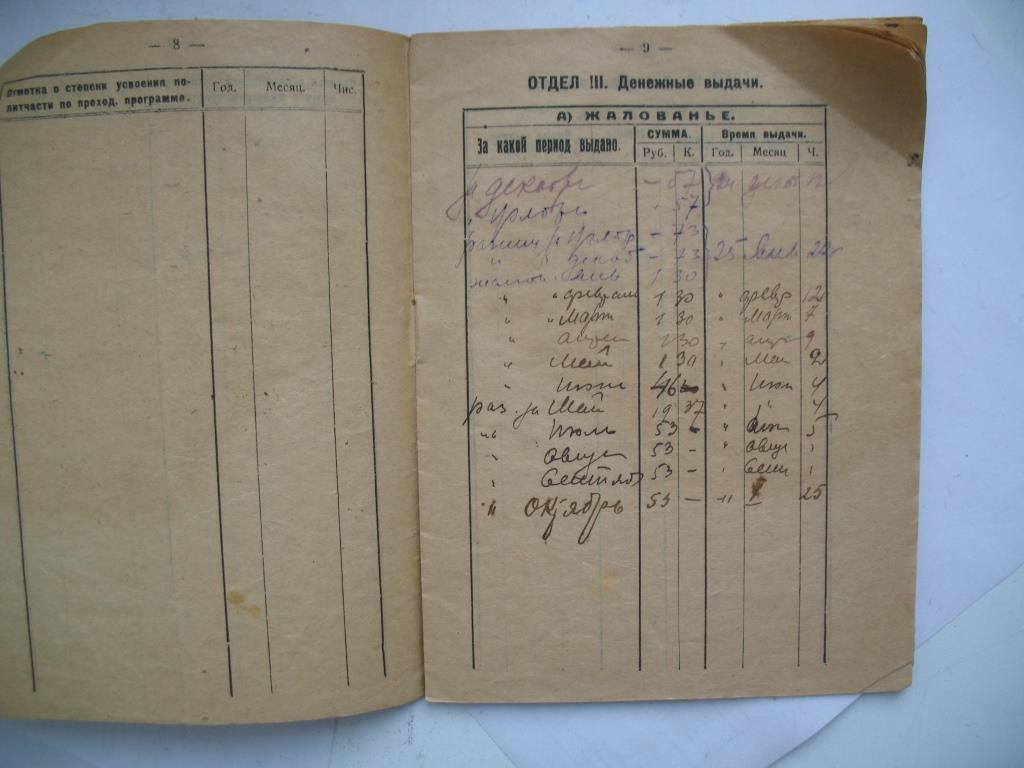 — 8 —
Отметка о степени усвоения по-
литчасти по проход. программе.
Год.
Месяц.
Чис.
— 9 —
ОТДЕЛ III. Денежные выдачи.
А) ЖАЛОВАНЬЕ.
За какой период выдано.
СУММА.
Время выдачи.
Руб. К. Год. Месяц Ч.
декабрь — 57 24
- 57
— 73
" — 73 25
1 30
" " феврал 1 30 " февр 12
" " Март 1 30 " Март 7
" апрел 1 30 " апр 9
" Май 1 30 " Май 2
" Июн 46 — " Июн 4
раз. за Май 19 37 " " 4
" Июл 53 — " 5
" Август 53 — " Август 1
" Сентяб 53 — " Сент 1
" Октябрь 53 — " 25